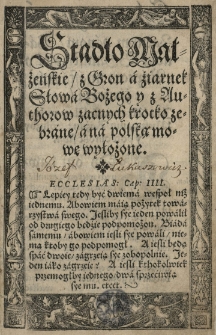 Stadło Mał-
żeńskie / z Gron á źiarnek
Słowá Bożego y z Au-
thorow zacnych krotko ze-
bráne / á ná polską mo-
wę wyłożone.
Jozef Łukaszewicz
ECCLESIAS: Cap: IIII.
Lepiey tedy być dwiemá wespoł niż
iednemu. Abowiem máią pożytek towa-
rzystwá swego. Jesliby sye ieden powálił
od drugiego będzie podpomożon. Biádá
sámemu / ábowiem iesli sye powáli / nie
ma ktoby go podpomogł. A iesli będą
spáć dwoie / zágrzeią sye zobopolnie. Je-
den iáko zágrzeie? A iesli kthokolwiek
przemogłby iednego / dwá sprzeciwią
sye mu. etcet.